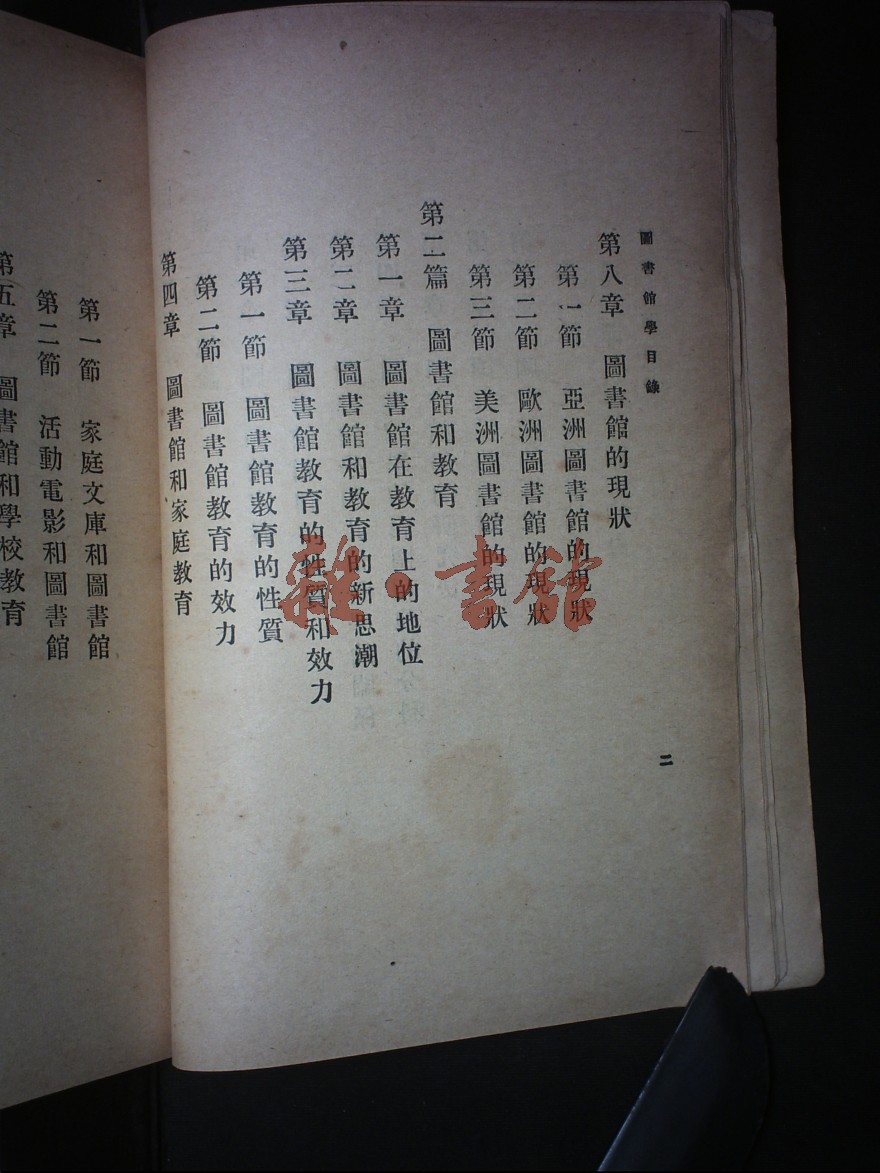 圖書館學目錄
第八章 圖書館的現狀
第一節 亞洲圖書館的現狀
第二節 歐洲圖書館的現狀
第三節 美洲圖書館的現狀
第二篇 圖書館和教育
第一章 圖書館在教育上的地位
第二章 圖書館和教育的新思潮
第三章 圖書館教育的性質和效力
第一節 圖書館教育的性質
第二節 圖書館教育的效力
第四章 圖書館和家庭教育
二
第一節 家庭文庫和圖書館
第二節 活動電影和圖書館
第五章 圖書館和學校教育
雜·書館